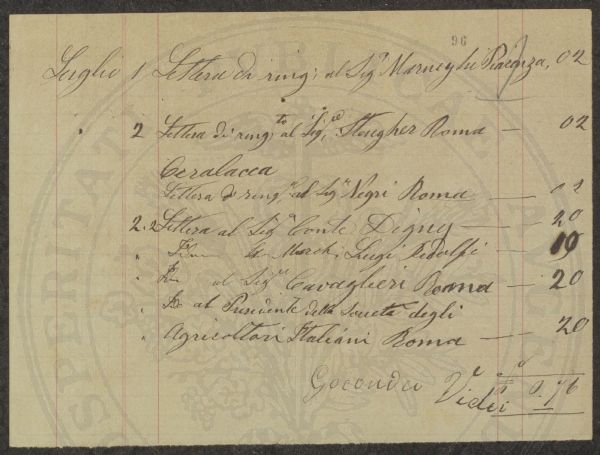 96
Luglio 1 Lettera di ring; al Sigr Marney di Piacenza, 02
" 2 Lettera di ringto al Sigre Stougher Roma — 02
Ceralacca
Lettera di ringto al Sigr Negri Roma — 02
2.2 Lettera al Sigr Conte Digny — 20
" March; Luigi Ridolfi — 10
" al Sigr Cavaglieri Roma — 20
" al Presidente della Società degli
" Agricoltori Italiani Roma — 20
Gioconda Vidi 0.76